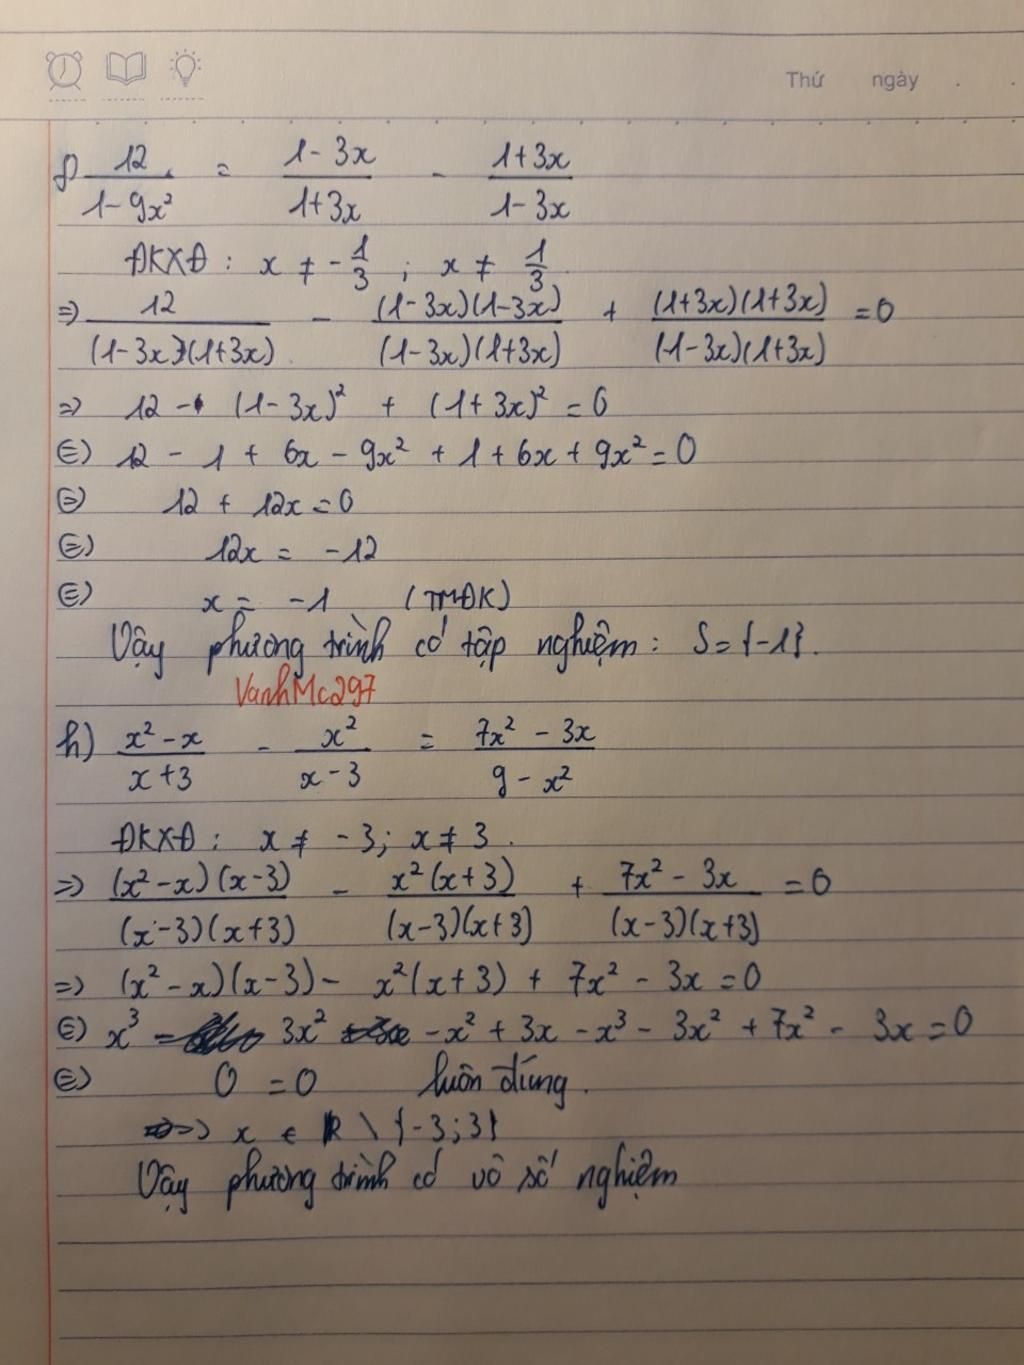 Thứ ngày
f) 12/(1-9x²) = (1-3x)/(1+3x) - (1+3x)/(1-3x)
ĐKXĐ : x ≠ -1/3 ; x ≠ 1/3
=> 12/((1-3x)(1+3x)) - ((1-3x)(1-3x))/((1-3x)(1+3x)) + ((1+3x)(1+3x))/((1-3x)(1+3x)) = 0
=> 12 - (1-3x)² + (1+3x)² = 0
⇔ 12 - 1 + 6x - 9x² + 1 + 6x + 9x² = 0
⇔ 12 + 12x = 0
⇔ 12x = -12
⇔ x = -1 (TMĐK)
Vậy phương trình có tập nghiệm : S = {-1}.
VanhMc297
h) (x²-x)/(x+3) - x²/(x-3) = (7x²-3x)/(9-x²)
ĐKXĐ : x ≠ -3; x ≠ 3.
=> ((x²-x)(x-3))/((x-3)(x+3)) - (x²(x+3))/((x-3)(x+3)) + (7x²-3x)/((x-3)(x+3)) = 0
=> (x²-x)(x-3) - x²(x+3) + 7x² - 3x = 0
⇔ x³ - 3x² - x² + 3x - x³ - 3x² + 7x² - 3x = 0
⇔ 0 = 0 luôn đúng.
=> x ∈ R \ {-3;3}
Vậy phương trình có vô số nghiệm